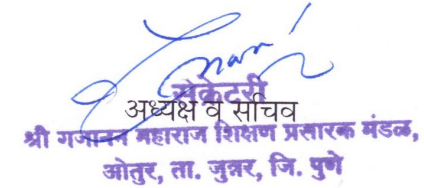 सेक्रेटरी
अध्यक्ष व सचिव
श्री गजानन महाराज शिक्षण प्रसारक मंडळ,
ओतुर, ता. जुन्नर, जि. पुणे